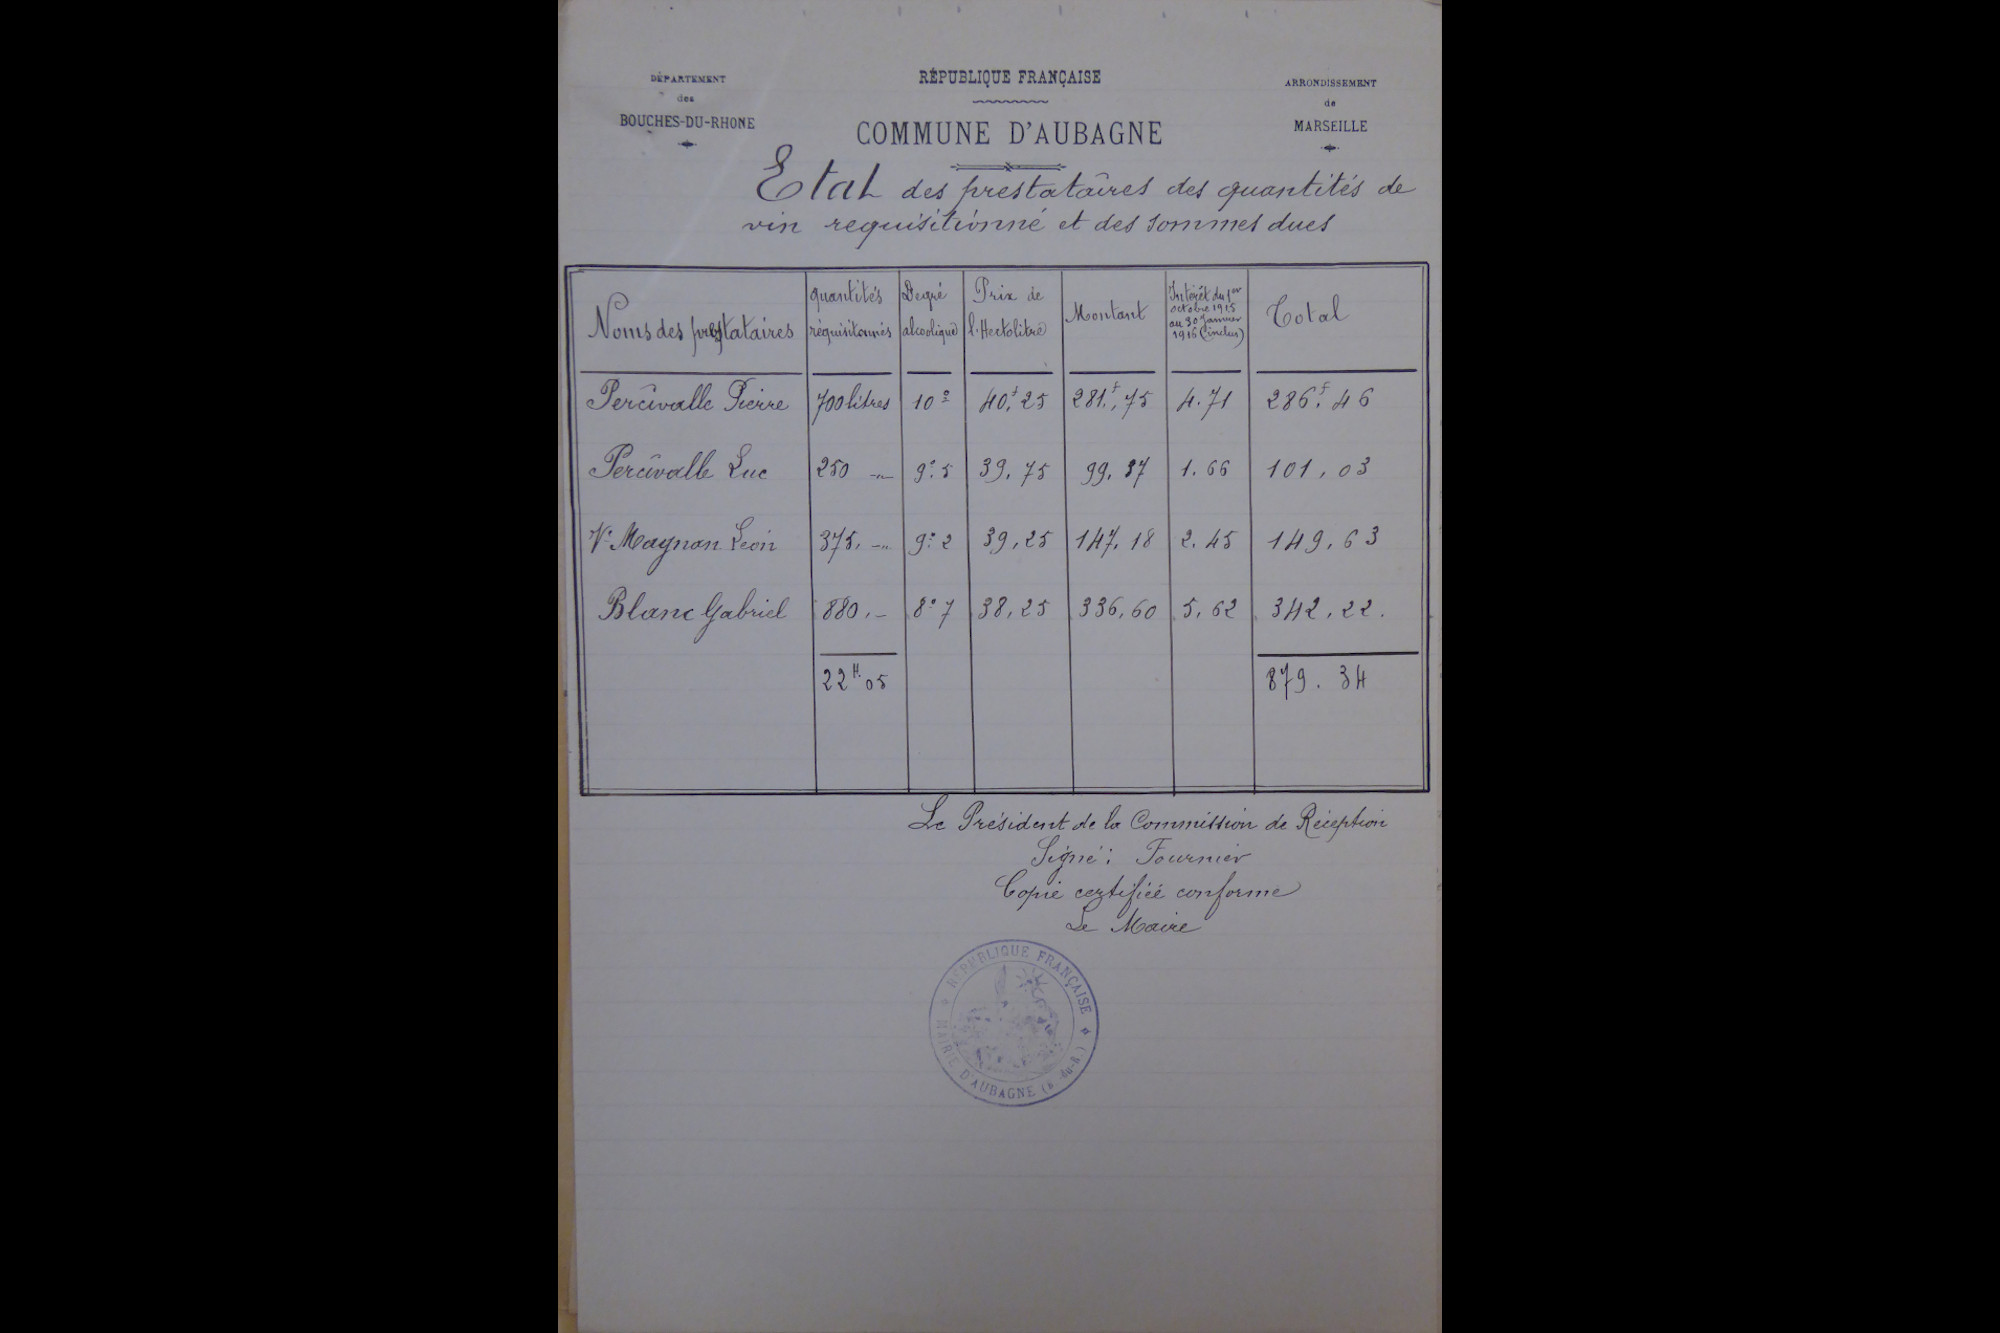 DÉPARTEMENT
des
BOUCHES-DU-RHONE
RÉPUBLIQUE FRANÇAISE
COMMUNE D'AUBAGNE
ARRONDISSEMENT
de
MARSEILLE
Etat des prestataires des quantités de
vin requisitionné et des sommes dues
Noms des prestataires
quantités
réquisitionnés
Degré
alcoolique
Prix de
l'Hectolitre
Montant
Intérêt du 1er
octobre 1915
au 30 Janvier
1916 (inclus)
Total
Percivalle Pierre 700 litres 10° 40f,25 281f,75 4.71 286f,46
Percivalle Luc 250 -"- 9°.5 39,75 99,37 1.66 101,03
Ve Maynan Léon 375, -"- 9°.2 39,25 147,18 2.45 149,63
Blanc Gabriel 880,- 8°7 38,25 336,60 5,62 342,22.
22H.05 879.34
Le Président de la Commission de Réception
Signé: Fournier
Copie certifiée conforme
Le Maire
* RÉPUBLIQUE FRANÇAISE *
MAIRIE D'AUBAGNE (B.-du-R.)